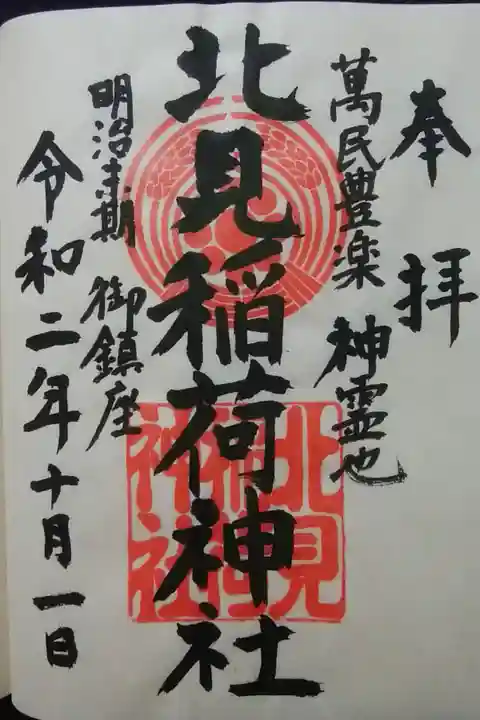 奉拝
萬民豊楽 神霊也
北見稲荷神社
北見稲荷神社
明治末期 御鎮座
令和二年十月一日